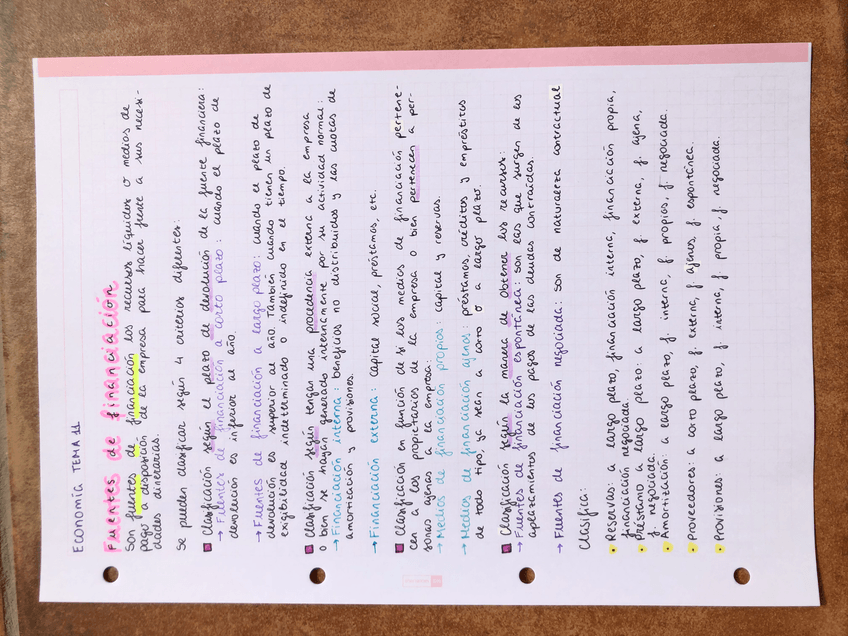 ECONOMÍA TEMA 11
Fuentes de financiación
Son fuentes de financiación los recursos líquidos o medios de
pago a disposición de la empresa para hacer frente a sus necesi-
dades dinerarias.
Se pueden clasificar según 4 criterios diferentes:
Clasificación según el plazo de devolución de la fuente financiera:
→ Fuentes de financiación a corto plazo: cuando el plazo de
devolución es inferior al año.
→ Fuentes de financiación a largo plazo: cuando el plazo de
devolución es superior al año. También cuando tienen un plazo de
exigibilidad indeterminado o indefinido en el tiempo.
Clasificación según tengan una procedencia externa a la empresa
o bien se hayan generado internamente por su actividad normal:
→ Financiación interna: beneficios no distribuidos y las cuotas de
amortización y provisiones.
→ Financiación externa: capital social, préstamos, etc.
Clasificación en función de si los medios de financiación pertene-
cen a los propietarios de la empresa o bien pertenecen a per-
sonas ajenas a la empresa:
→ Medios de financiación propios: capital y reservas.
→ Medios de financiación ajenos: préstamos, créditos y empréstitos
de todo tipo, ya sean a corto o a largo plazo.
Clasificación según la manera de obtener los recursos:
→ Fuentes de financiación espontánea: son las que surgen de los
aplazamientos de los pagos de las deudas contraídas.
→ Fuentes de financiación negociada: son de naturaleza contractual
Clasifica:
• Reservas: a largo plazo, financiación interna, financiación propia,
financiación negociada.
• Préstamo a largo plazo: a largo plazo, f. externa, f. ajena,
f. negociada.
• Amortización: a largo plazo, f. interna, f. propios, f. negociada.
• Proveedores: a corto plazo, f. externa, f. ajenos, f. espontánea.
• Provisiones: a largo plazo, f. interna, f. propia, f. negociada.